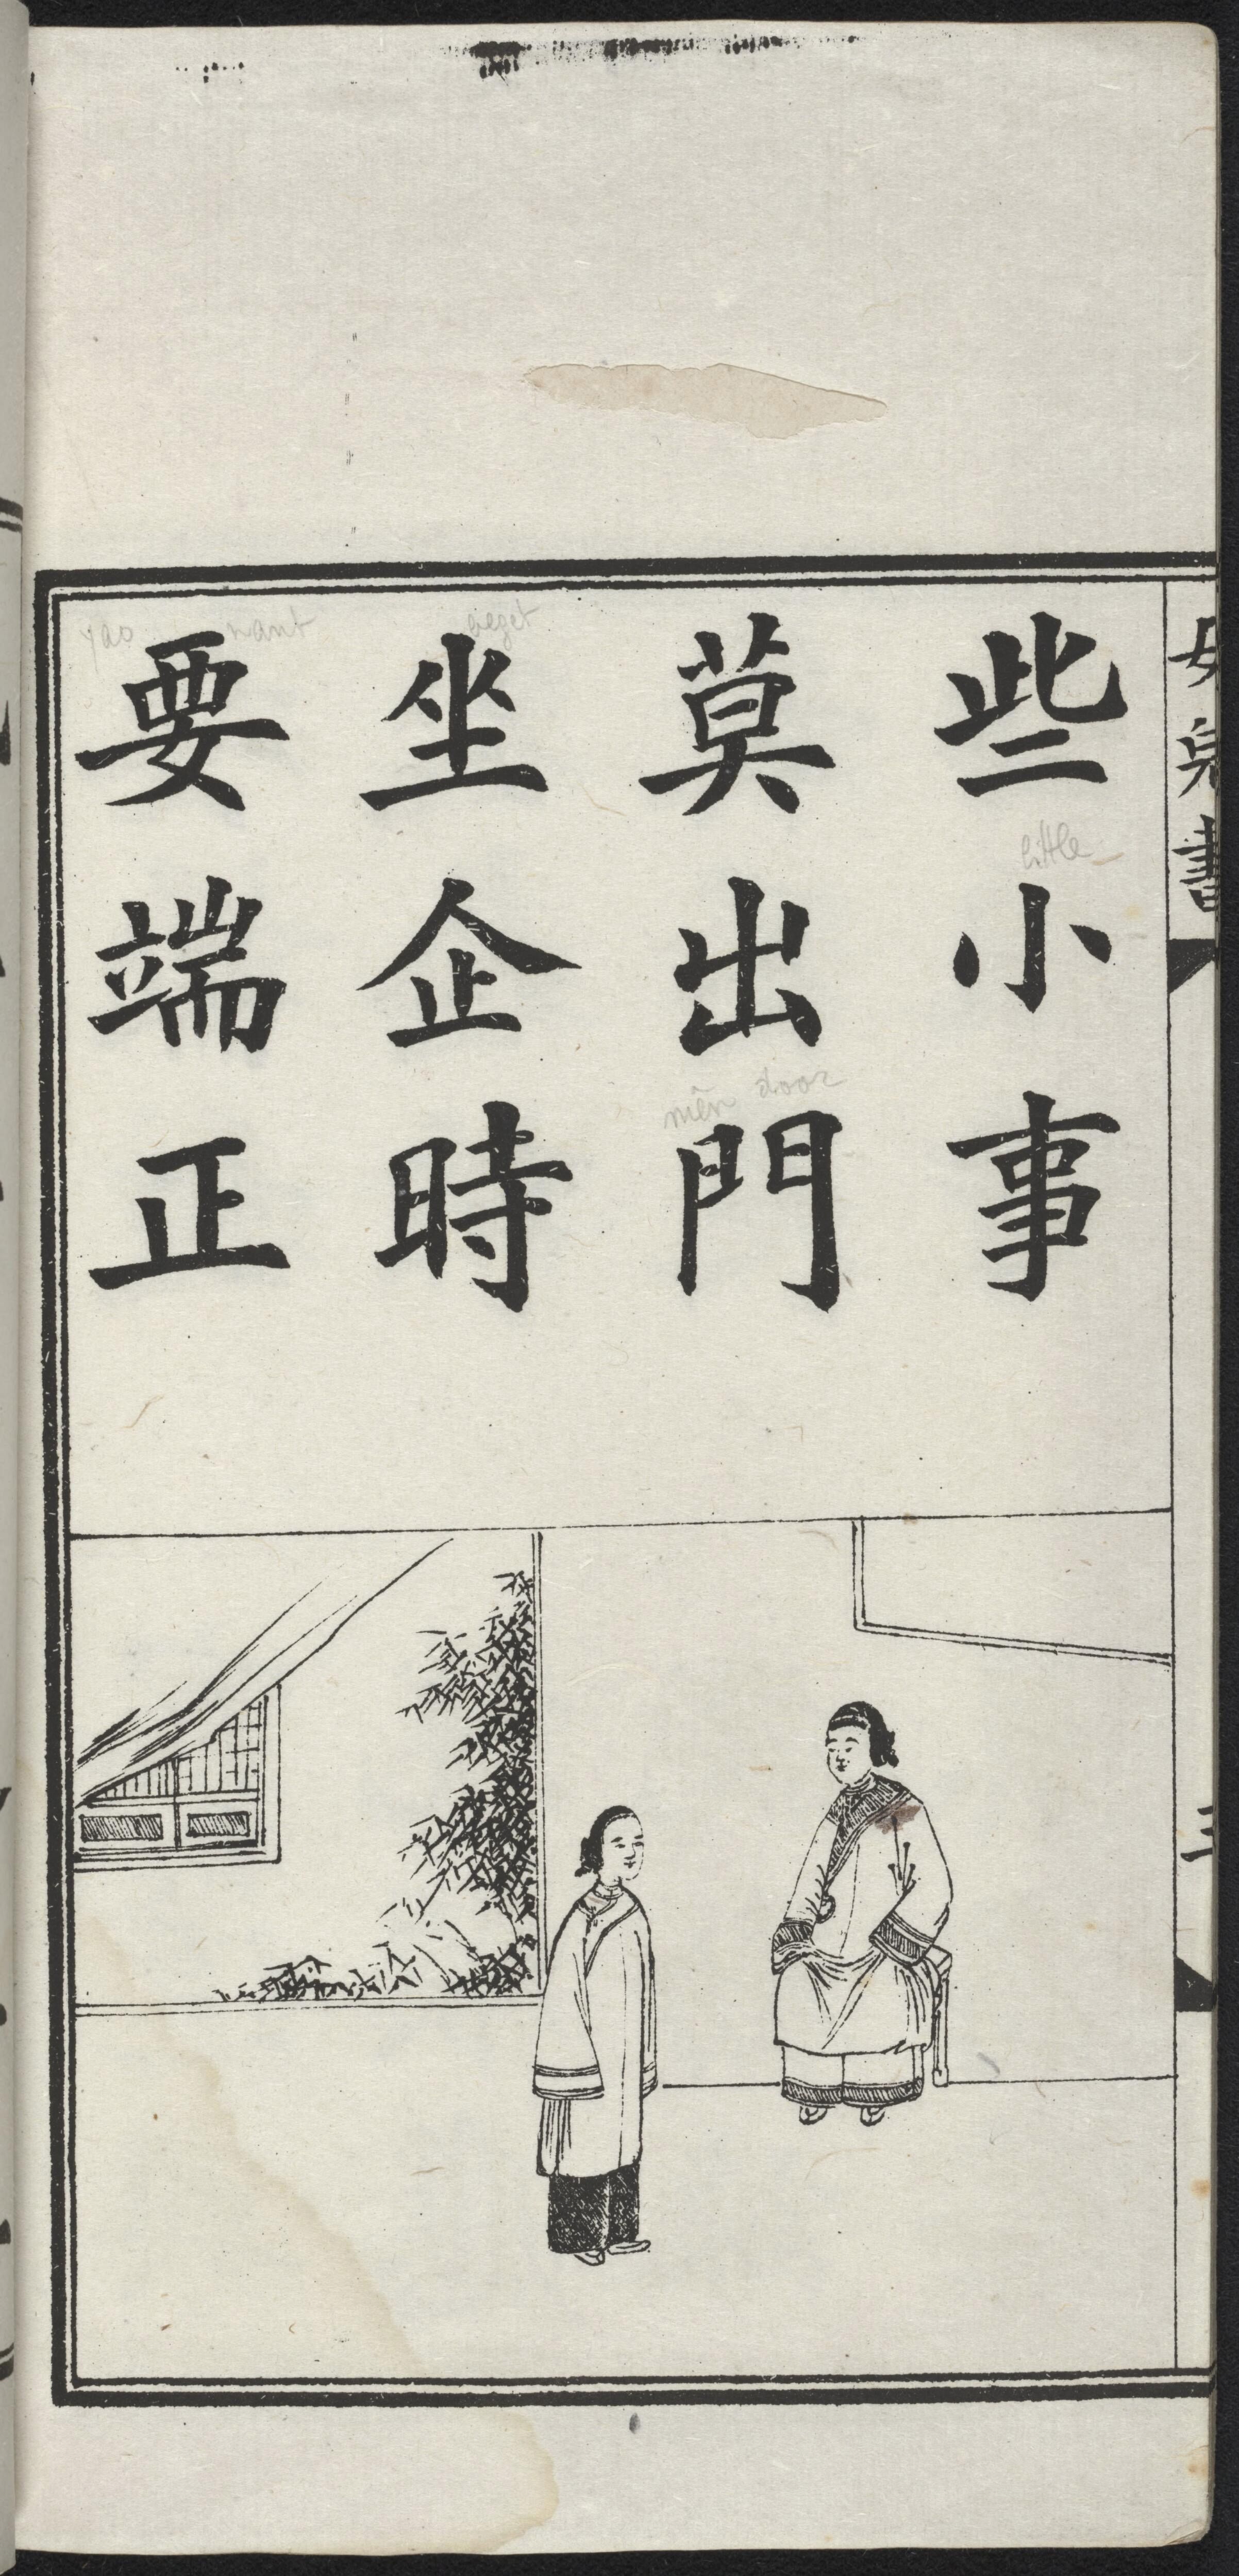 女兒書
三
些小事
莫出門
坐企時
要端正
little
mên door
yao want